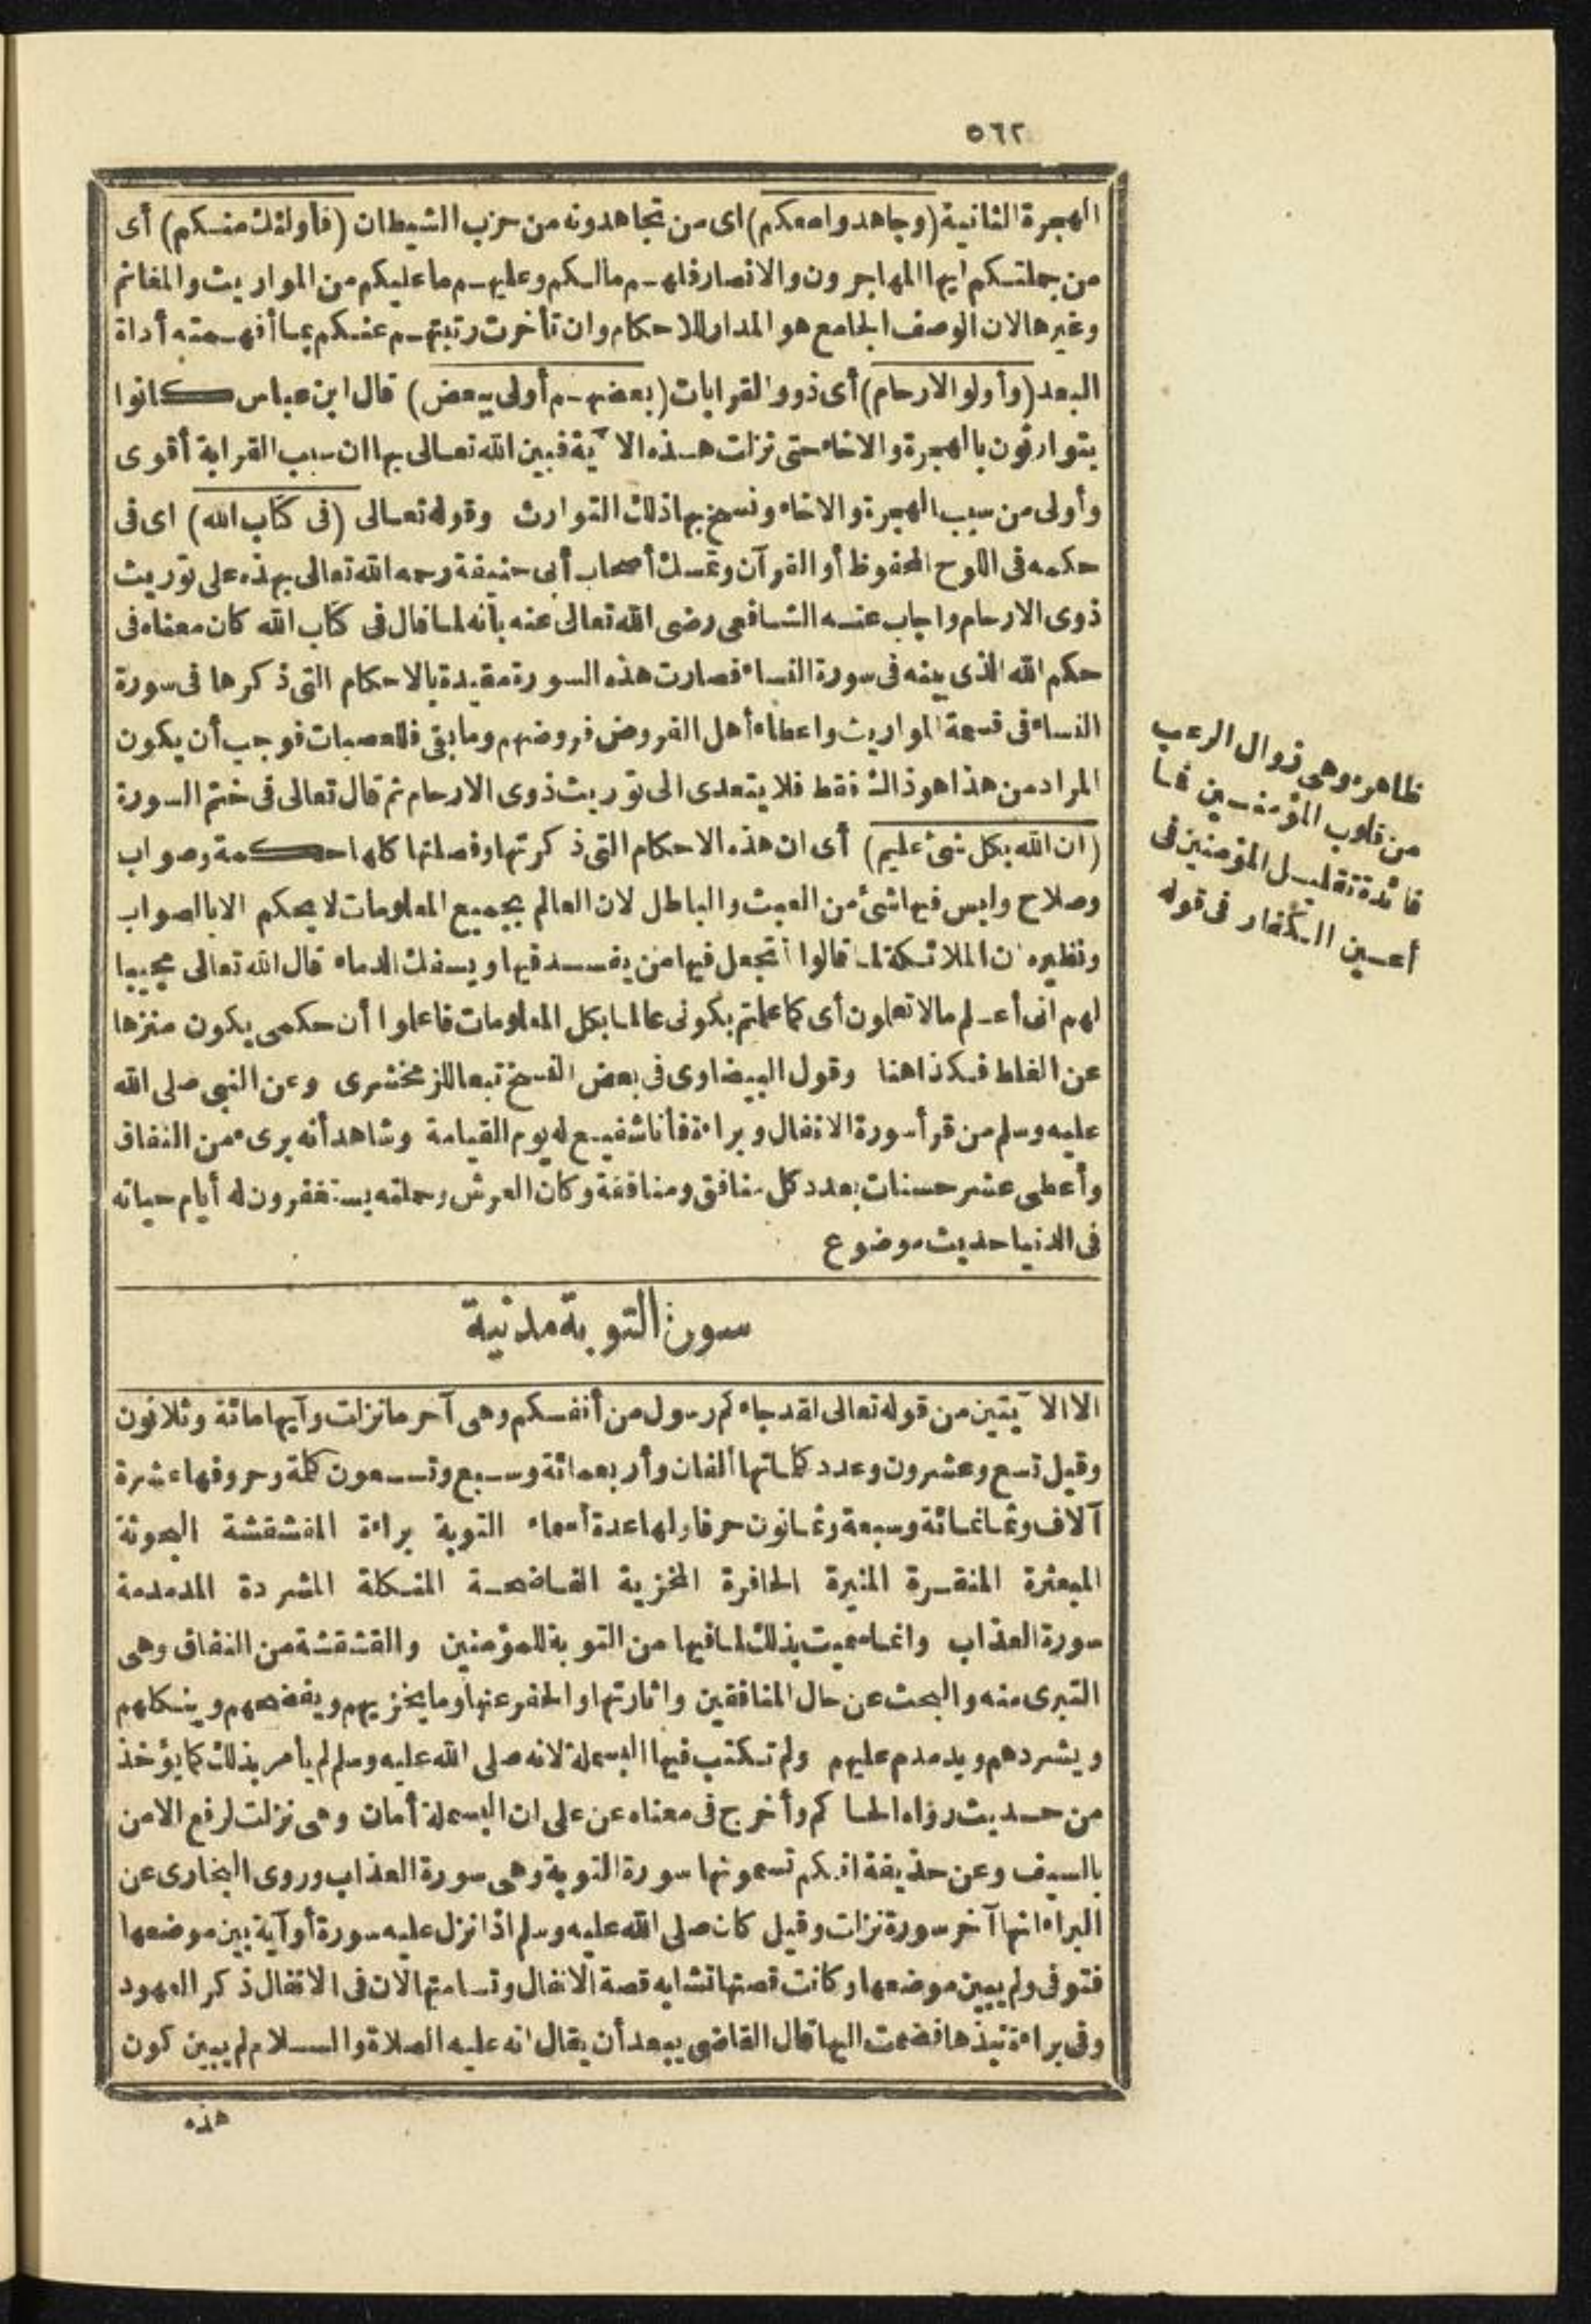 ٥٦٢
الهجرة الثانية (وجاهدوا معكم) اى من تجاهدونه من حزب الشيطان (فأولئك منكم) أى
من جملتكم ايها المهاجرون والانصار فلهم مالكم وعليهم ما عليكم من المواريث والمغانم
وغيرها لان الوصف الجامع هو المدار للاحكام وان تأخرت رتبتهم عنكم بما أفهمته أداة
البعد (وأولو الارحام) أى ذوو القرابات (بعضهم أولى ببعض) قال ابن عباس كانوا
يتوارثون بالهجرة والاخاء حتى نزلت هذه الآية فبين الله تعالى بها ان سبب القرابة أقوى
وأولى من سبب الهجرة والاخاء ونسخ بها ذلك التوارث وقوله تعالى (فى كتاب الله) اى فى
حكمه فى اللوح المحفوظ أو القرآن وتمسك أصحاب أبى حنيفة رحمه الله تعالى بهذه على توريث
ذوى الارحام واجاب عنه الشافعى رضى الله تعالى عنه بأنه لما قال فى كتاب الله كان معناه فى
حكم الله الذى بينه فى سورة النساء فصارت هذه السورة مقيدة بالاحكام التى ذكرها فى سورة
النساء فى قسمة المواريث واعطاء أهل الفروض فروضهم وما بقى فللعصبات فوجب أن يكون
المراد من هذا هو ذاك فقط فلا يتعدى الى توريث ذوى الارحام ثم قال تعالى فى ختم السورة
(ان الله بكل شئ عليم) أى ان هذه الاحكام التى ذكرتها وفصلتها كلها حكمة وصواب
وصلاح وليس فيها شئ من العبث والباطل لان العالم بجميع المعلومات لا يحكم الا بالصواب
ونظيره ان الملائكة لما قالوا أتجعل فيها من يفسد فيها ويسفك الدماء قال الله تعالى مجيبا
لهم انى أعلم مالا تعلمون أى كما علمتم بكونى عالما بكل المعلومات فاعلموا أن حكمى يكون منزها
عن الغلط فكذا هنا وقول البيضاوى فى بعض النسخ تبعا للزمخشرى وعن النبى صلى الله
عليه وسلم من قرأ سورة الانفال وبراءة فأنا شفيع له يوم القيامة وشاهد أنه برىء من النفاق
وأعطى عشر حسنات بعدد كل منافق ومنافقة وكان العرش وحملته يستغفرون له أيام حياته
فى الدنيا حديث موضوع
سورة التوبة مدنية
الا الآيتين من قوله تعالى لقد جاءكم رسول من أنفسكم وهى آخر ما نزلت وآيها مائة وثلاثون
وقيل تسع وعشرون وعدد كلماتها ألفان وأربعمائة وسبع وتسعون كلمة وحروفها عشرة
آلاف وثمانمائة وسبعة وثمانون حرفا ولها عدة أسماء التوبة براءة المقشقشة البحوثة
المبعثرة المنقرة المثيرة الحافرة المخزية الفاضحة المنكلة المشردة المدمدمة
سورة العذاب وانما سميت بذلك لما فيها من التوبة للمؤمنين والقشقشة من النفاق وهى
التبرى منه والبحث عن حال المنافقين واثارتها والحفر عنها وما يخزيهم ويفضحهم وينكلهم
ويشردهم ويدمدم عليهم ولم تكتب فيها البسملة لانه صلى الله عليه وسلم لم يأمر بذلك كما يؤخذ
من حديث رواه الحاكم وأخرج فى معناه عن على ان البسملة أمان وهى نزلت لرفع الامن
بالسيف وعن حذيفة انكم تسمونها سورة التوبة وهى سورة العذاب وروى البخارى عن
البراء انها آخر سورة نزلت وقيل كان صلى الله عليه وسلم اذا نزل عليه سورة أو آية بين موضعها
فتوفى ولم يبين موضعها وكانت قصتها تشابه قصة الانفال وتسامتها لان فى الانفال ذكر العهود
وفى براءة نبذها فضمت اليها قال القاضى يبعد أن يقال انه عليه الصلاة والسلام لم يبين كون
هذه
ظاهرة وهى زوال الرعب
من قلوب المؤمنين فما
فائدة تقليل المؤمنين فى
أعين الكفار فى قوله